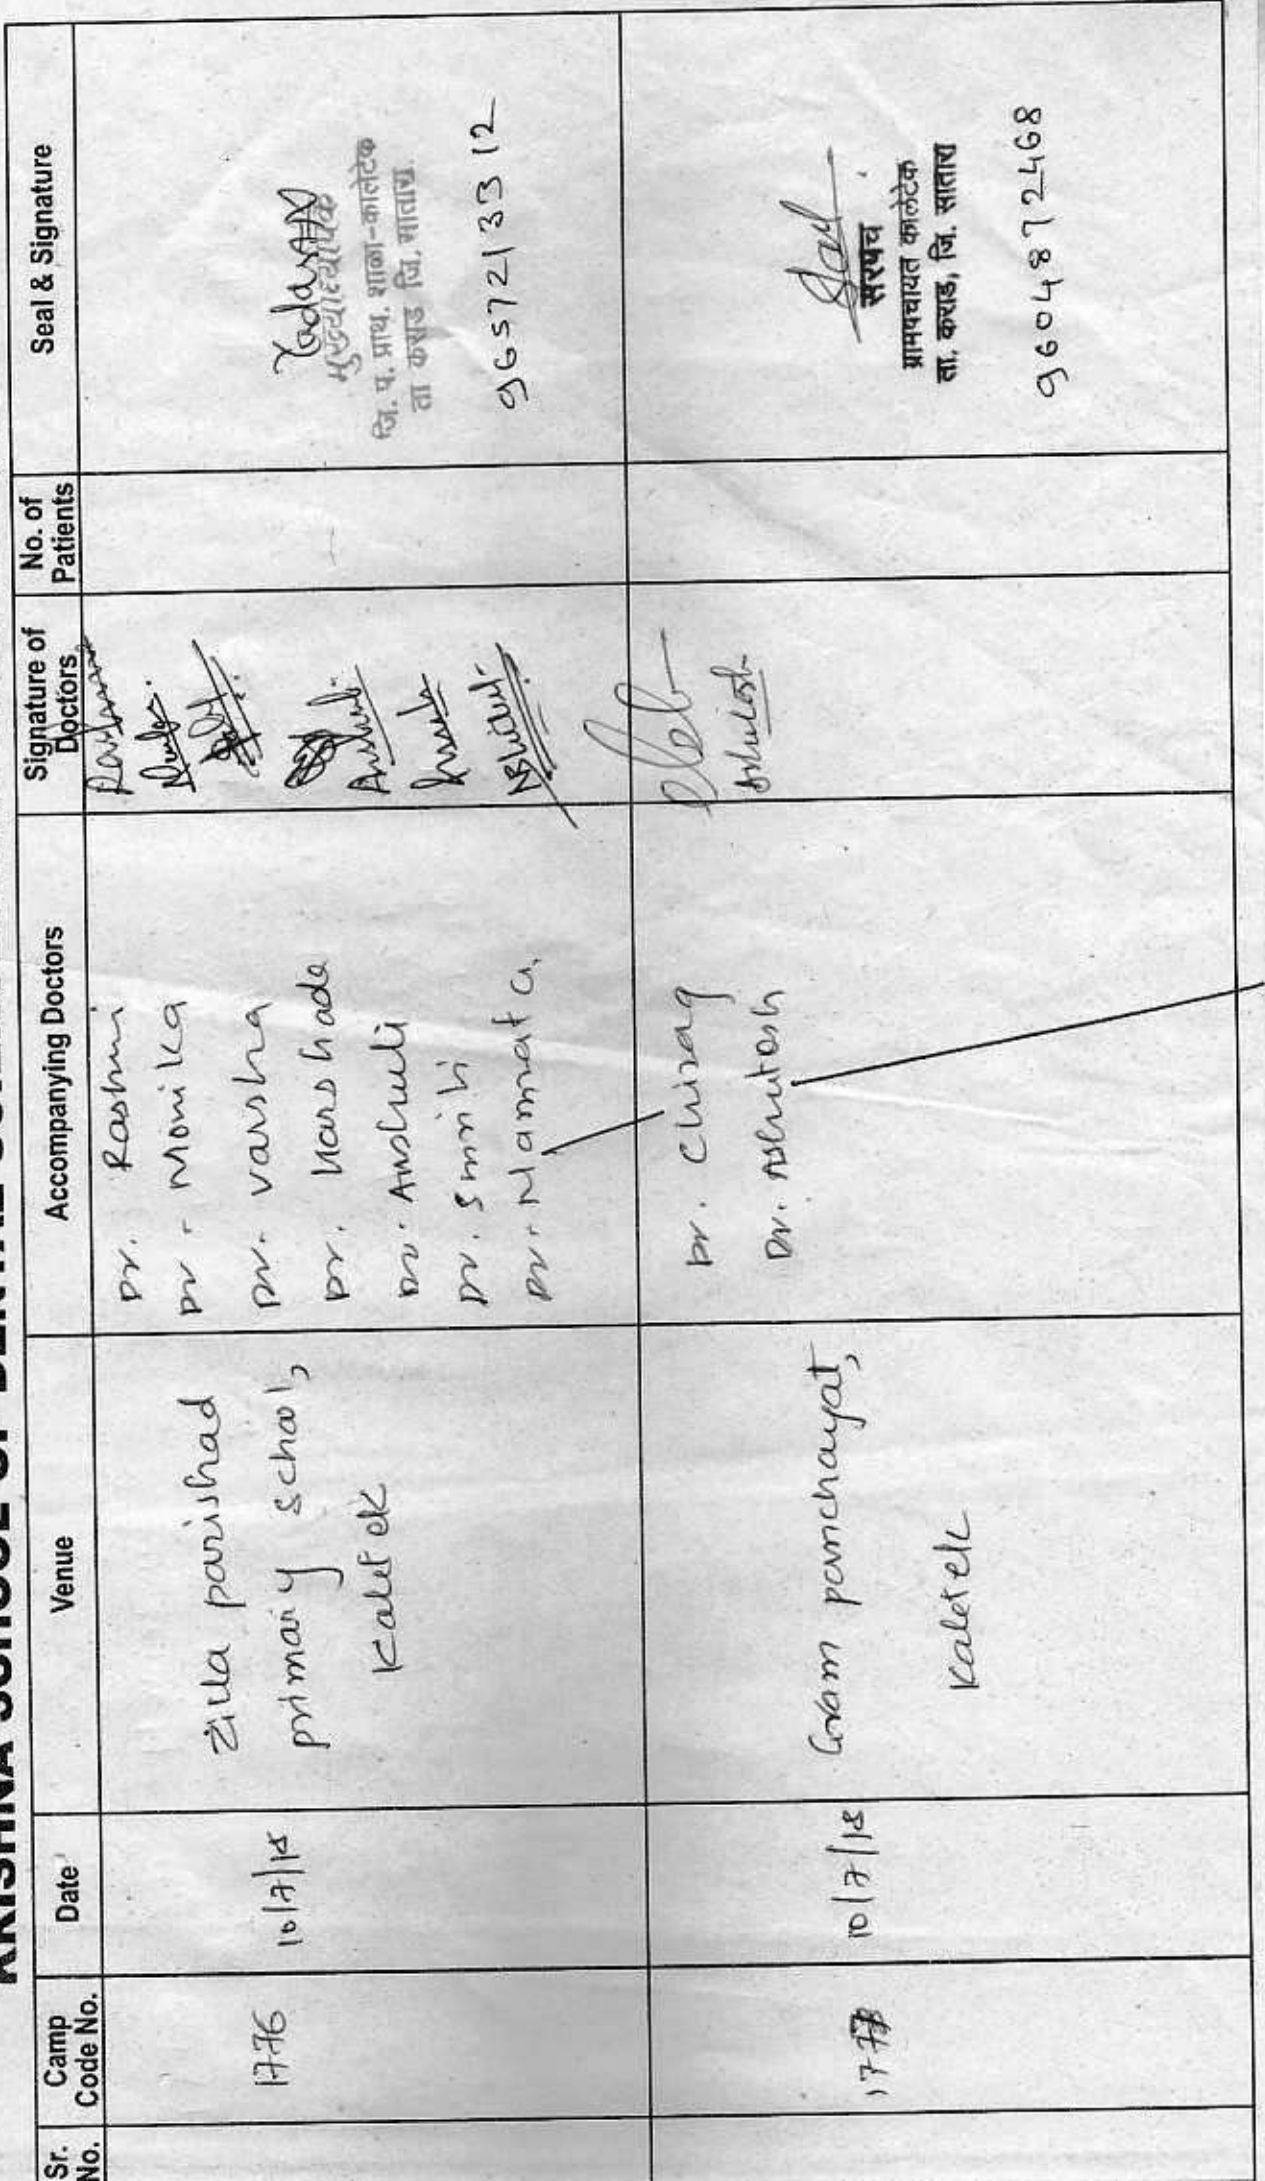 KRISHNA SCHOOL OF DENTAL
Sr. No.
Camp Code No.
Date
Venue
Accompanying Doctors
Signature of Doctors
No. of Patients
Seal & Signature
1776
10/7/18
Zilla parishad
primary school,
Kaletek
Dr. Rashmi
Dr. Monika
Dr. Varsha
Dr. Harshada
Dr. Anshuli
Dr. Smriti
Dr. Namrata G.
Anshuli
मुख्याध्यापक
जि. प. प्राथ. शाळा-कालेटेक
ता कराड जि. सातारा
9657213312
10/7/18
Gram panchayat,
Kaletek
Dr. Chirag
Dr. Ashutosh
Ashutosh
सरपंच
ग्रामपंचायत कालेटेक
ता. कराड, जि. सातारा
9604872468